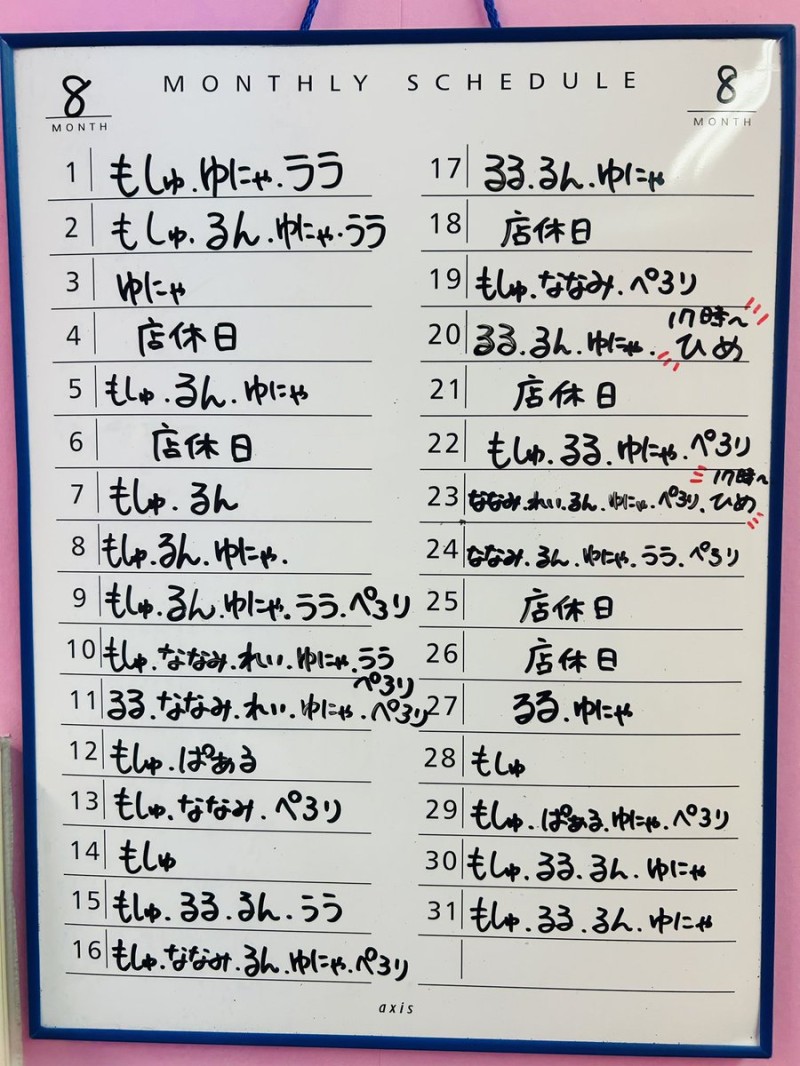 MONTHLY SCHEDULE
8
MONTH
8
MONTH
1 もしゅ.ゆにゃ.うう
2 もしゅ.るん.ゆにゃ.うう
3 ゆにゃ
4 店休日
5 もしゅ.るん.ゆにゃ
6 店休日
7 もしゅ.るん
8 もしゅ.るん.ゆにゃ.
9 もしゅ.るん.ゆにゃ.うう.ぺろり
10 もしゅ.ななみ.れい.ゆにゃ.うう
ぺろり
11 るる.ななみ.れい.ゆにゃ.ぺろり
12 もしゅ.ぱぁる
13 もしゅ.ななみ.ぺろり
14 もしゅ
15 もしゅ.るる.るん.うう
16 もしゅ.ななみ.るん.ゆにゃ.ぺろり
17 るる.るん.ゆにゃ
18 店休日
19 もしゅ.ななみ.ぺろり
17時〜
20 るる.るん.ゆにゃ.ひめ
21 店休日
22 もしゅ.るる.ゆにゃ.ぺろり
17時〜
23 ななみ.れい.るん.ゆにゃ.ぺろり.ひめ
24 ななみ.るん.ゆにゃ.うう.ぺろり
25 店休日
26 店休日
27 るる.ゆにゃ
28 もしゅ
29 もしゅ.ぱぁる.ゆにゃ.ぺろり
30 もしゅ.るる.るん.ゆにゃ
31 もしゅ.るる.るん.ゆにゃ
axis